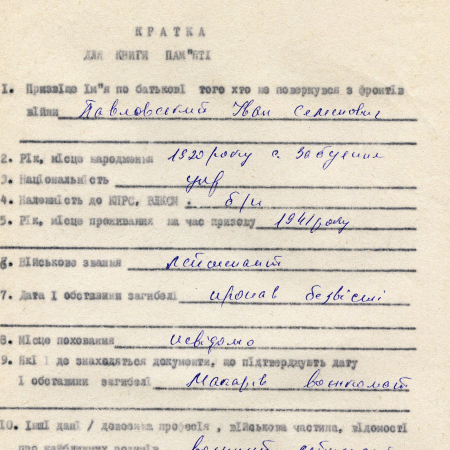 КРАТКА
ДЛЯ КНИГИ ПАМ"ЯТІ
1. Прізвіще Ім"я по батькові того хто не повернувся з фронтів
війни Павловський Іван Семенович
2. Рік, місце народження 1920 року с.
3. Національність укр
4. Належність до КПРС, ВЛКСМ . б/п
5. Рік, місце проживання на час призову 1941 року
6. Військове звання лейтенант
7. Дата і обставини загибелі пропав безвісті
8. Місце поховання невідомо
9. Які і де знаходяться документи, що підтверджують дату
і обставини загибелі Макарів военкомат
10. Інші дані / довоєнна професія , військова частина, відомості
про найближчих родичів